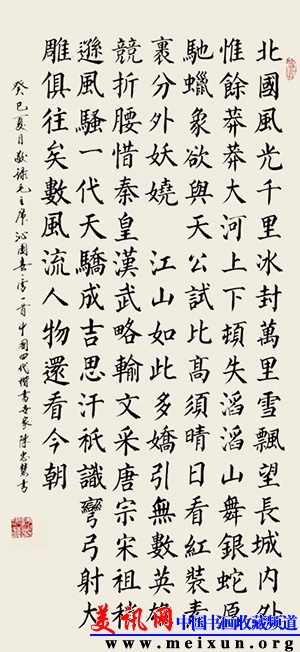 北國風光千里冰封萬里雪飄望長城內外
惟餘莽莽大河上下頓失滔滔山舞銀蛇原
馳蠟象欲與天公試比髙須晴日看紅裝素
裹分外妖嬈 江山如此多嬌引無數英雄
競折腰惜秦皇漢武略輸文采唐宗宋祖稍
遜風騷一代天驕成吉思汗祇識彎弓射大
雕俱往矣數風流人物還看今朝
癸巳夏月敬錄毛主席沁園春雪一首中國四代楷書世家陳忠慧書
美讯网 中国书画收藏频道
www.meixun.org